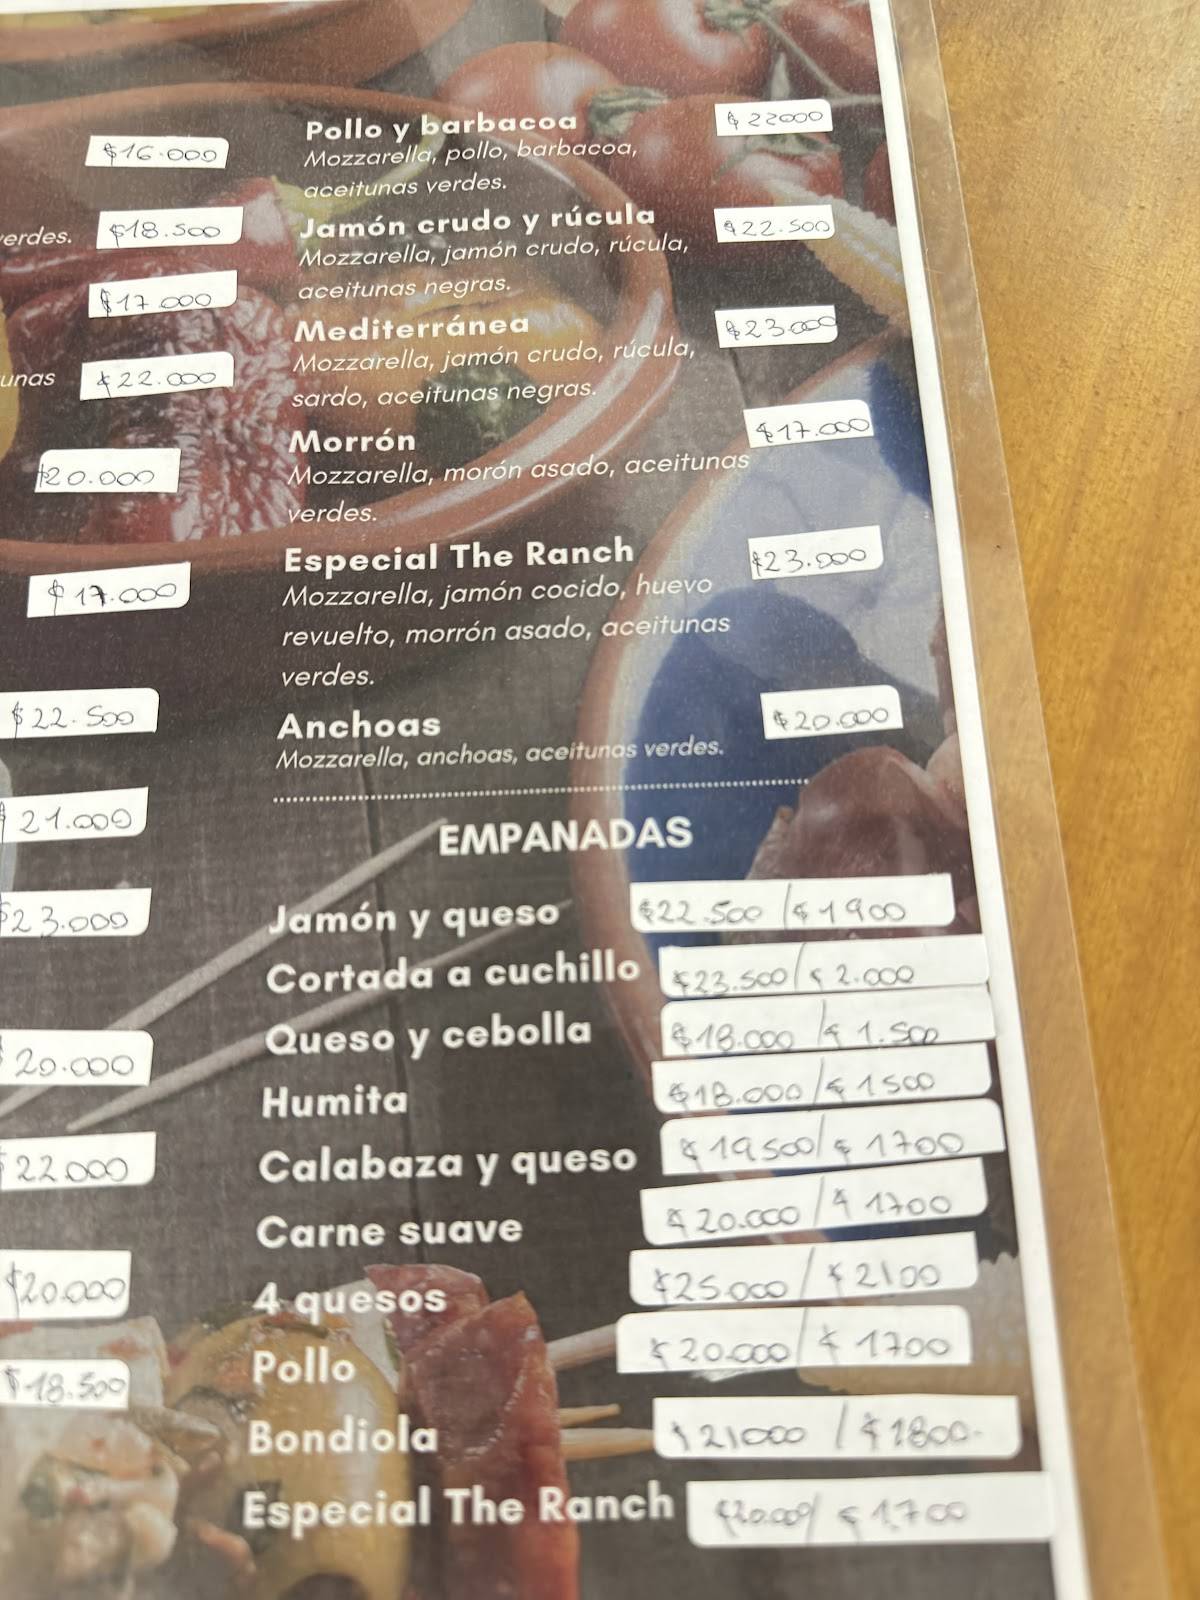 $16.000
verdes. $18.500
$17.000
unas $22.000
$20.000
$17.000
$22.500
$21.000
$23.000
$20.000
$22.000
$20.000
$18.500
Pollo y barbacoa $22000
Mozzarella, pollo, barbacoa,
aceitunas verdes.
Jamón crudo y rúcula $22.500
Mozzarella, jamón crudo, rúcula,
aceitunas negras.
Mediterránea $23.000
Mozzarella, jamón crudo, rúcula,
sardo, aceitunas negras.
Morrón $17.000
Mozzarella, morón asado, aceitunas
verdes.
Especial The Ranch $23.000
Mozzarella, jamón cocido, huevo
revuelto, morrón asado, aceitunas
verdes.
Anchoas $20.000
Mozzarella, anchoas, aceitunas verdes.
EMPANADAS
Jamón y queso $22.500 / $1900
Cortada a cuchillo $23.500 / $2.000
Queso y cebolla $18.000 / $1.500
Humita $18.000 / $1500
Calabaza y queso $19500 / $1700
Carne suave $20.000 / $1700
4 quesos $25.000 / $2100
Pollo $20.000 / $1700
Bondiola $21000 / $1800.-
Especial The Ranch $20.000 / $1.700